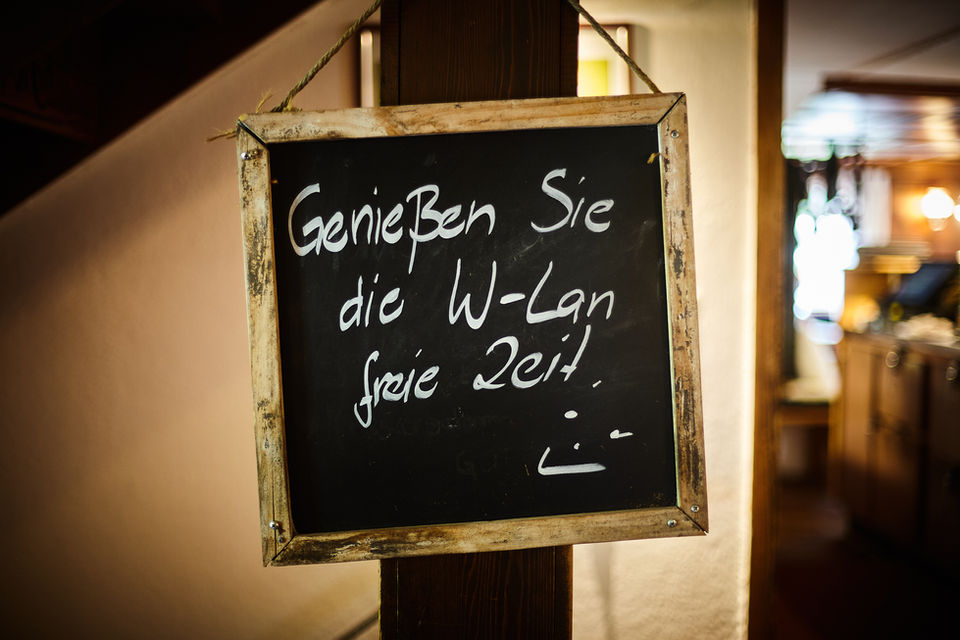 Genießen Sie
die W-Lan
freie Zeit.